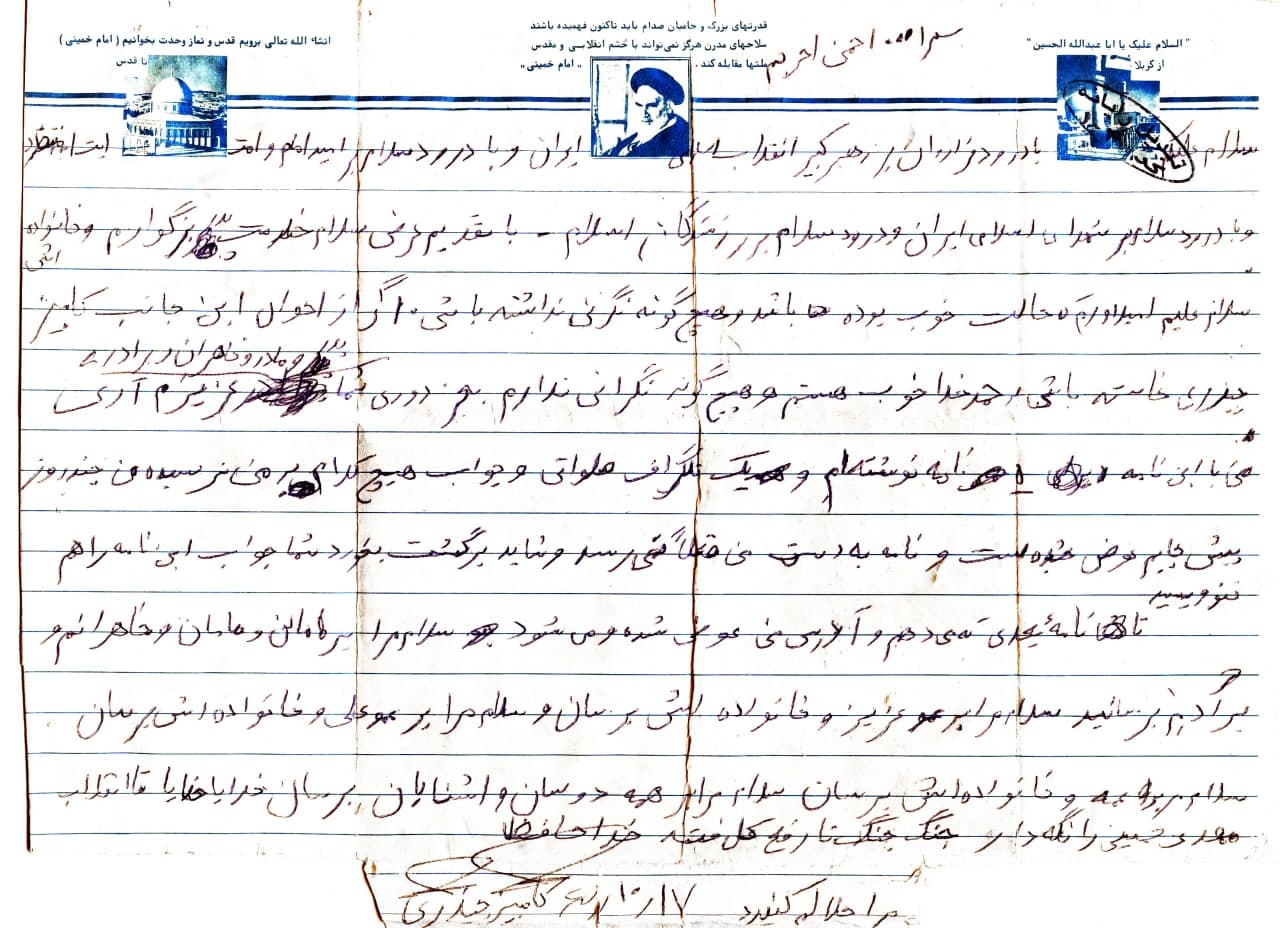 انشاء الله تعالی برویم قدس و نماز وحدت بخوانیم ( امام خمینی )
تا قدس
قدرتهای بزرگ و حامیان صدام باید تاکنون فهمیده باشند
سلاحهای مدرن هرگز نمی‌تواند با خشم انقلابی و مقدس
ملتها مقابله کند . « امام خمینی »
" السلام علیک یا ابا عبدالله الحسین "
از کربلا
سلام علیک با درود فراوان بر رهبر کبیر انقلاب اسلامی ایران و با درود سلام بر امید امام و امت
و با درود سلام بر شهدای اسلامی ایران و درود سلام بر رزمندگان اسلام - با تقدیم عرض سلام خدمت پدر بزرگوارم و خانواده
اش
سلام علیم امیداورم که حالت خوب بوده باشد و هیچ گونه نگرنی نداشته باشی . اگر از احوال این جانب کامبیز
پدر و مادر و خاهران و برادر
حیدری خاسته باشی بحمد خدا خوب هستم و هیچ گونه نگرانی ندارم بجز دوری شما عزیزم آری
من با این نامه نامه نوشته‌ام و یک تلگراف صلواتی و جواب هیچ کدام بر من نرسیده من چند روز
پیش جایم عوض شده است و نامه به دست من نمی رسد و شاید برگشت بخورد شما جواب این نامه را هم
ننویسید
تا نامهٔ بعدی که می دهم و آدرس من عوض شده و می شود سلام مرا بر مامان و خاهرانم و
برادرم برسانید سلام مرا بر عمو عزیز و خانواده اش برسان و سلام مرا بر عمو علی و خانواده اش برسان
سلام بر عمه و خانواده اش برسان سلام مرا بر همه دوسان و اشنایان برسان خدایا خدایا تا انقلاب
مهدی خمینی را نگه دار جنگ جنگ تا رفع کل فتنه خدا حافظ
مرا حلال کنید ۱۷ /۱۰/ کامبیز حیدری